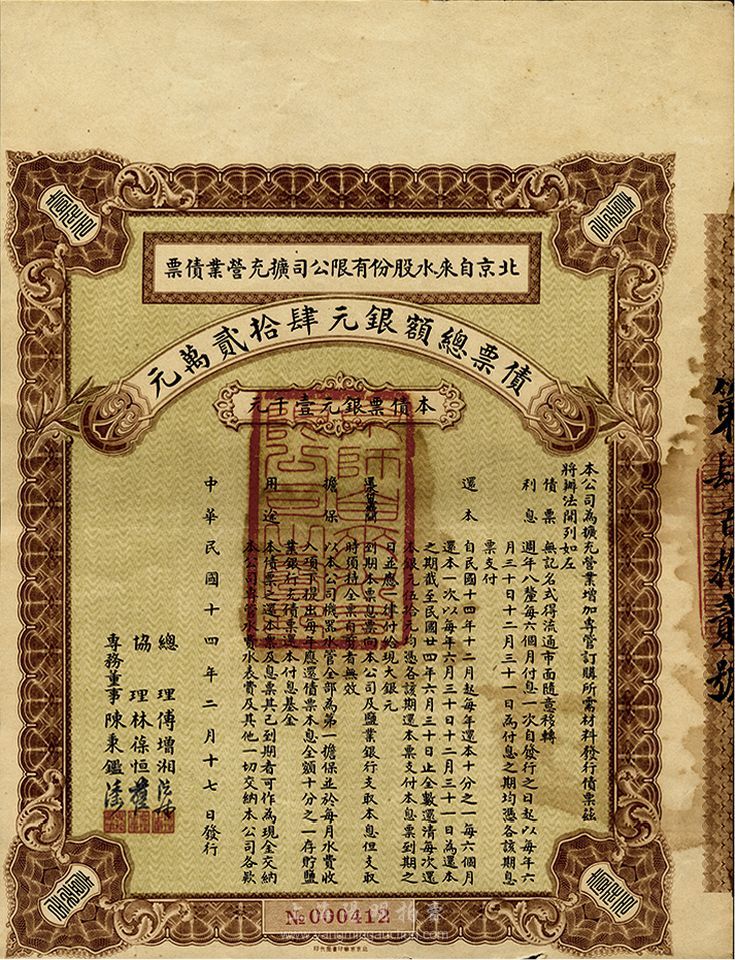 北京自來水股份有限公司擴充營業債票
債票總額銀元肆拾貳萬元
本債票銀元壹千元
本公司為擴充營業增加專管訂購所需材料發行債票茲
將辦法開列如左
債票 無記名式得流通市面隨意移轉
利息 週年八釐每六個月付息一次自發行之日起以每年六
月三十日十二月三十一日為付息之期均憑各該期息
票支付
還本 自民國十四年十二月起每年還本十分之一每六個月
還本一次以每年六月三十日十二月三十一日為還本
之期截至民國廿四年六月三十日止全數還清每次還
本銀元伍拾元均憑各該期還本票支付本息票到期之
日並應一律付給現大銀元
到期本票息票向本公司及鹽業銀行支取本息但支取
時須持全票自剪者無效
擔保 以本公司機器水管全部為第一擔保並於每月水費收
入項下提出每年應還債票本息全額十分之一存貯鹽
業銀行充債票還本付息基金
用途 本債票之還本票及息票其已到期者可作為現金交納
本公司專管水費水表費及其他一切交納本公司各款
中華民國十四年二月十七日發行
總理傅增湘
協理林葆恒
專務董事陳秉鑑
№000412
www.yangmingauction.com